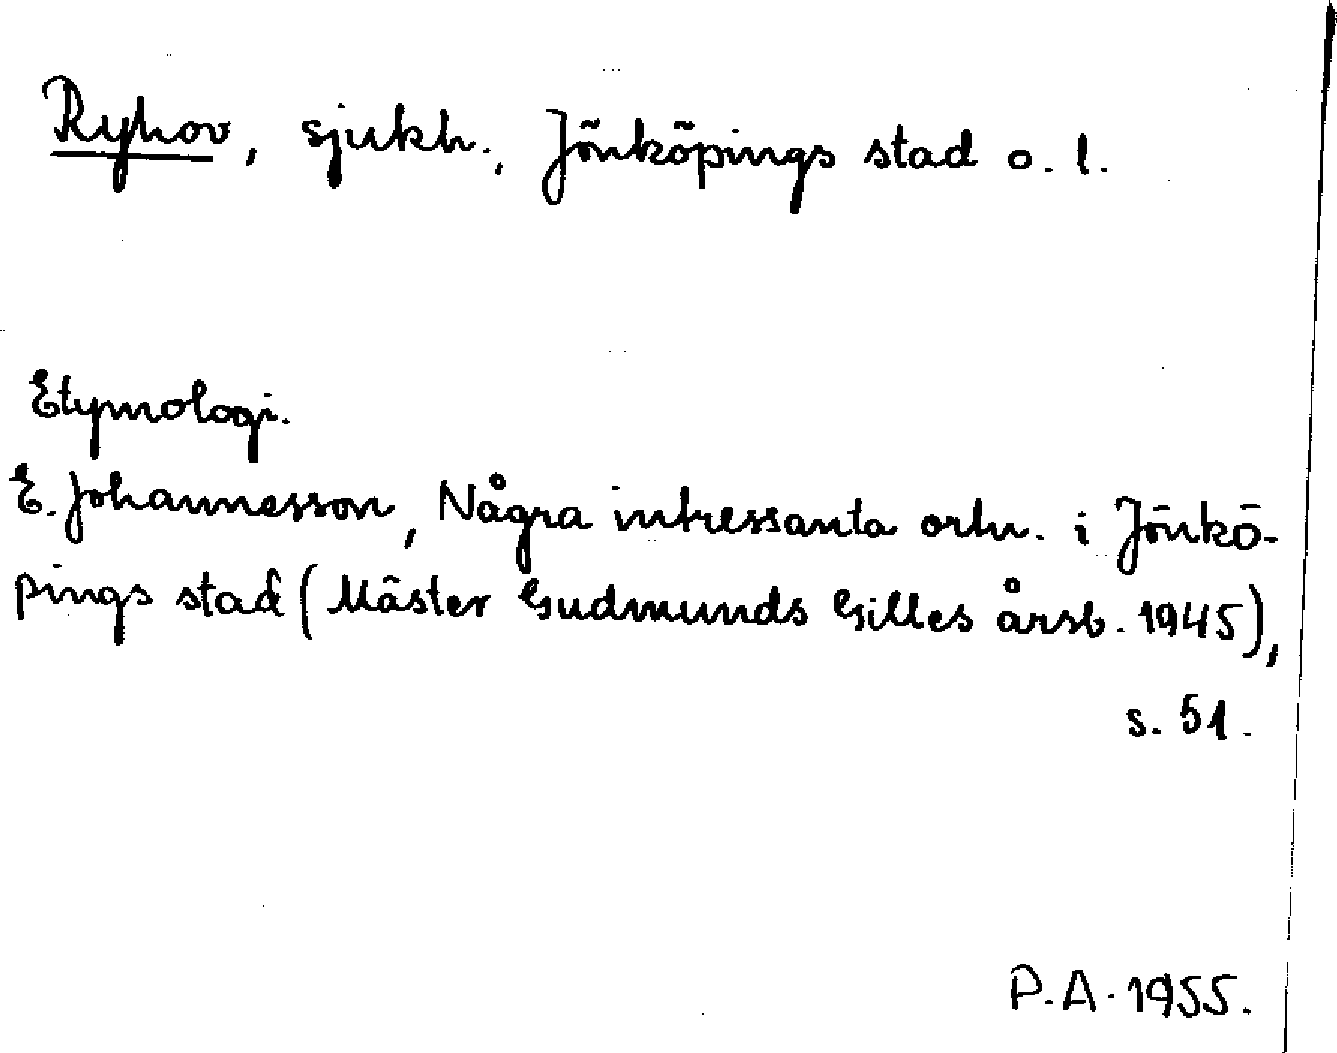 Ryhov, sjukh., Jönköpings stad o. l.
Etymologi.
E. Johannesson, Några intressanta ortn. i Jönkö-
pings stad (Mäster Gudmunds Gilles årsb. 1945),
s. 51.
P.A. 1955.